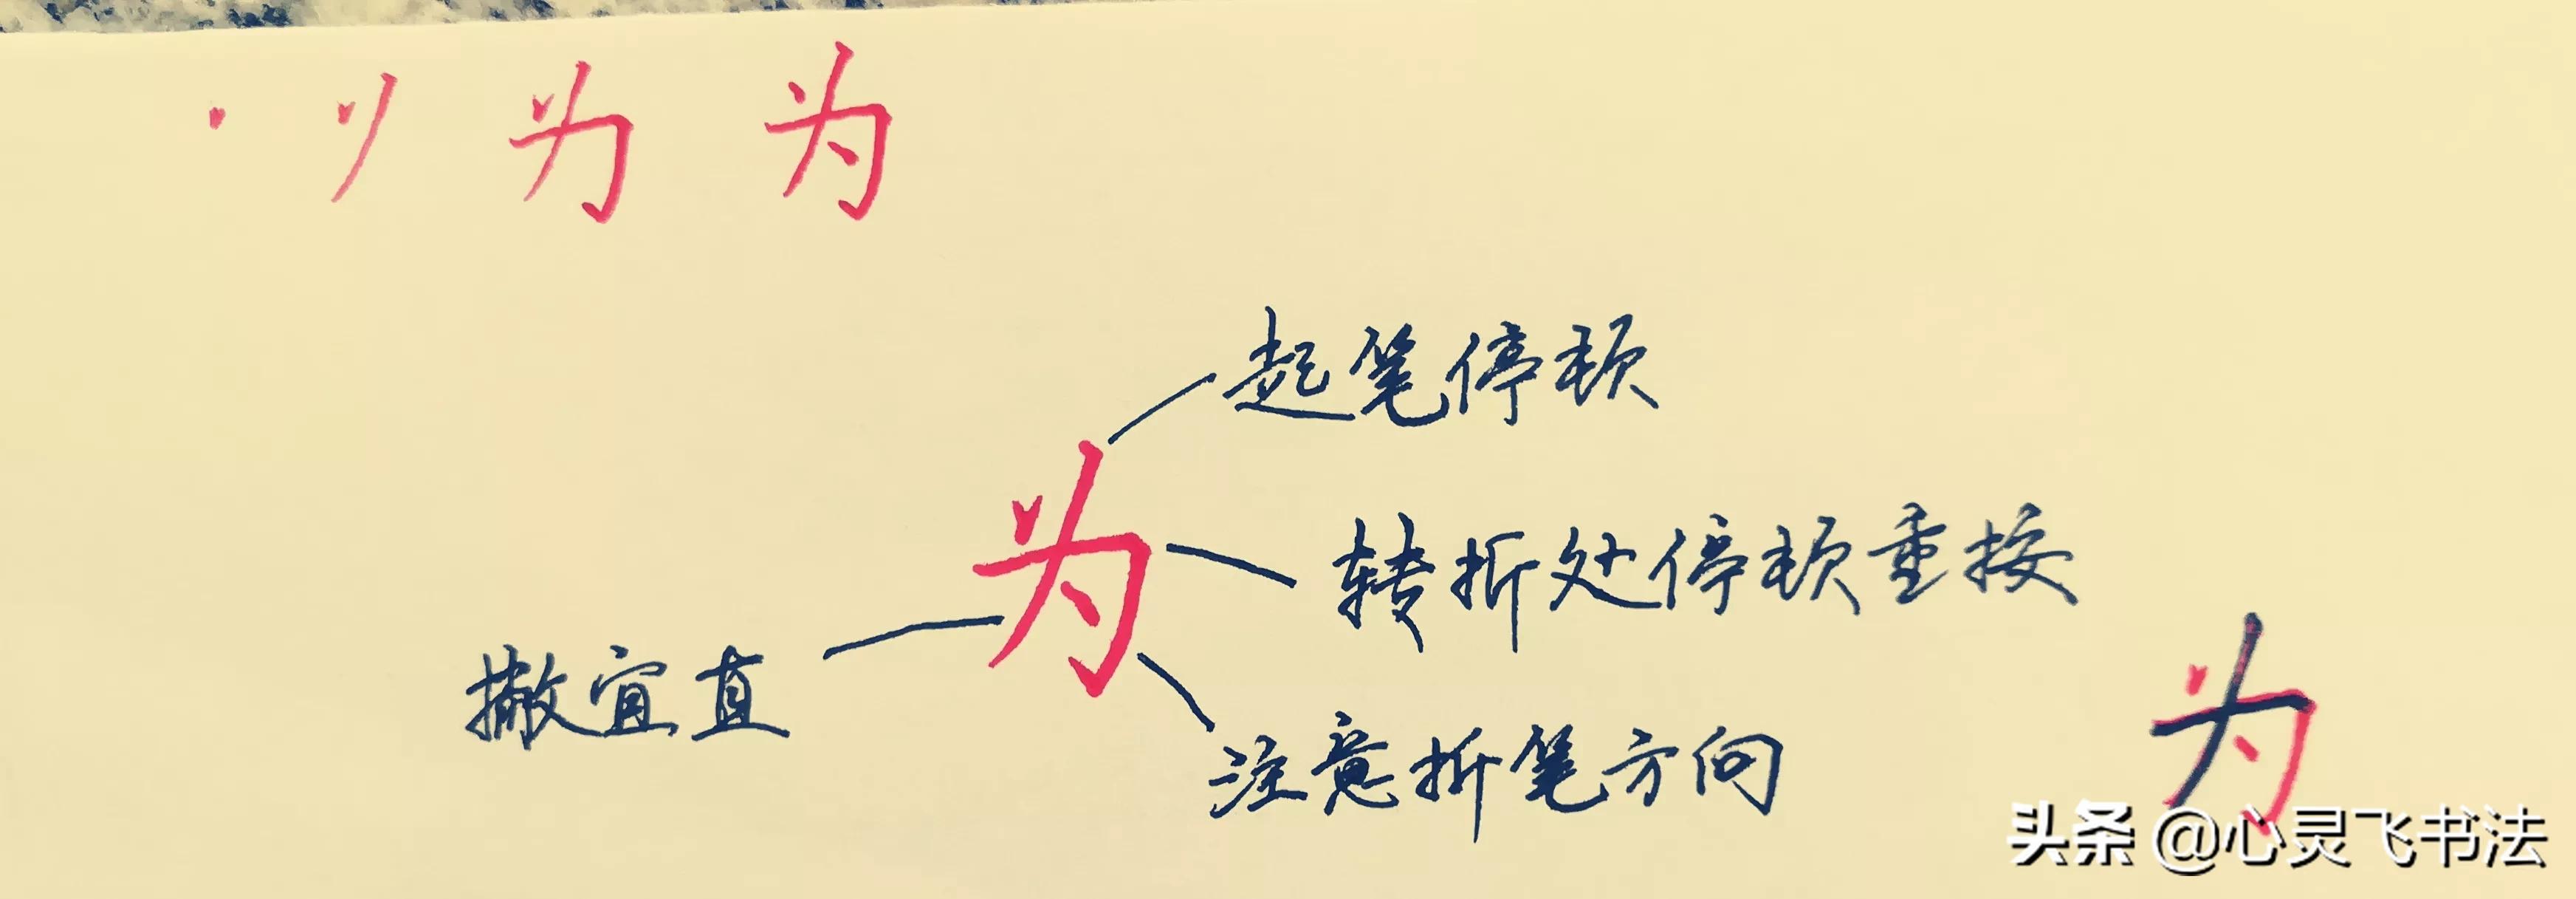 丶 丷 为 为
起笔停顿
为
转折处停顿重按
撇宜直
注意折笔方向
为
头条 @心灵飞书法